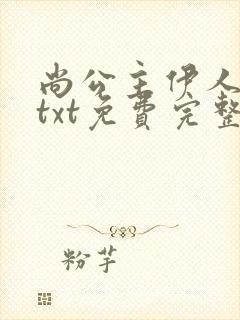 尚公主伊人
txt免费完整
粉芋